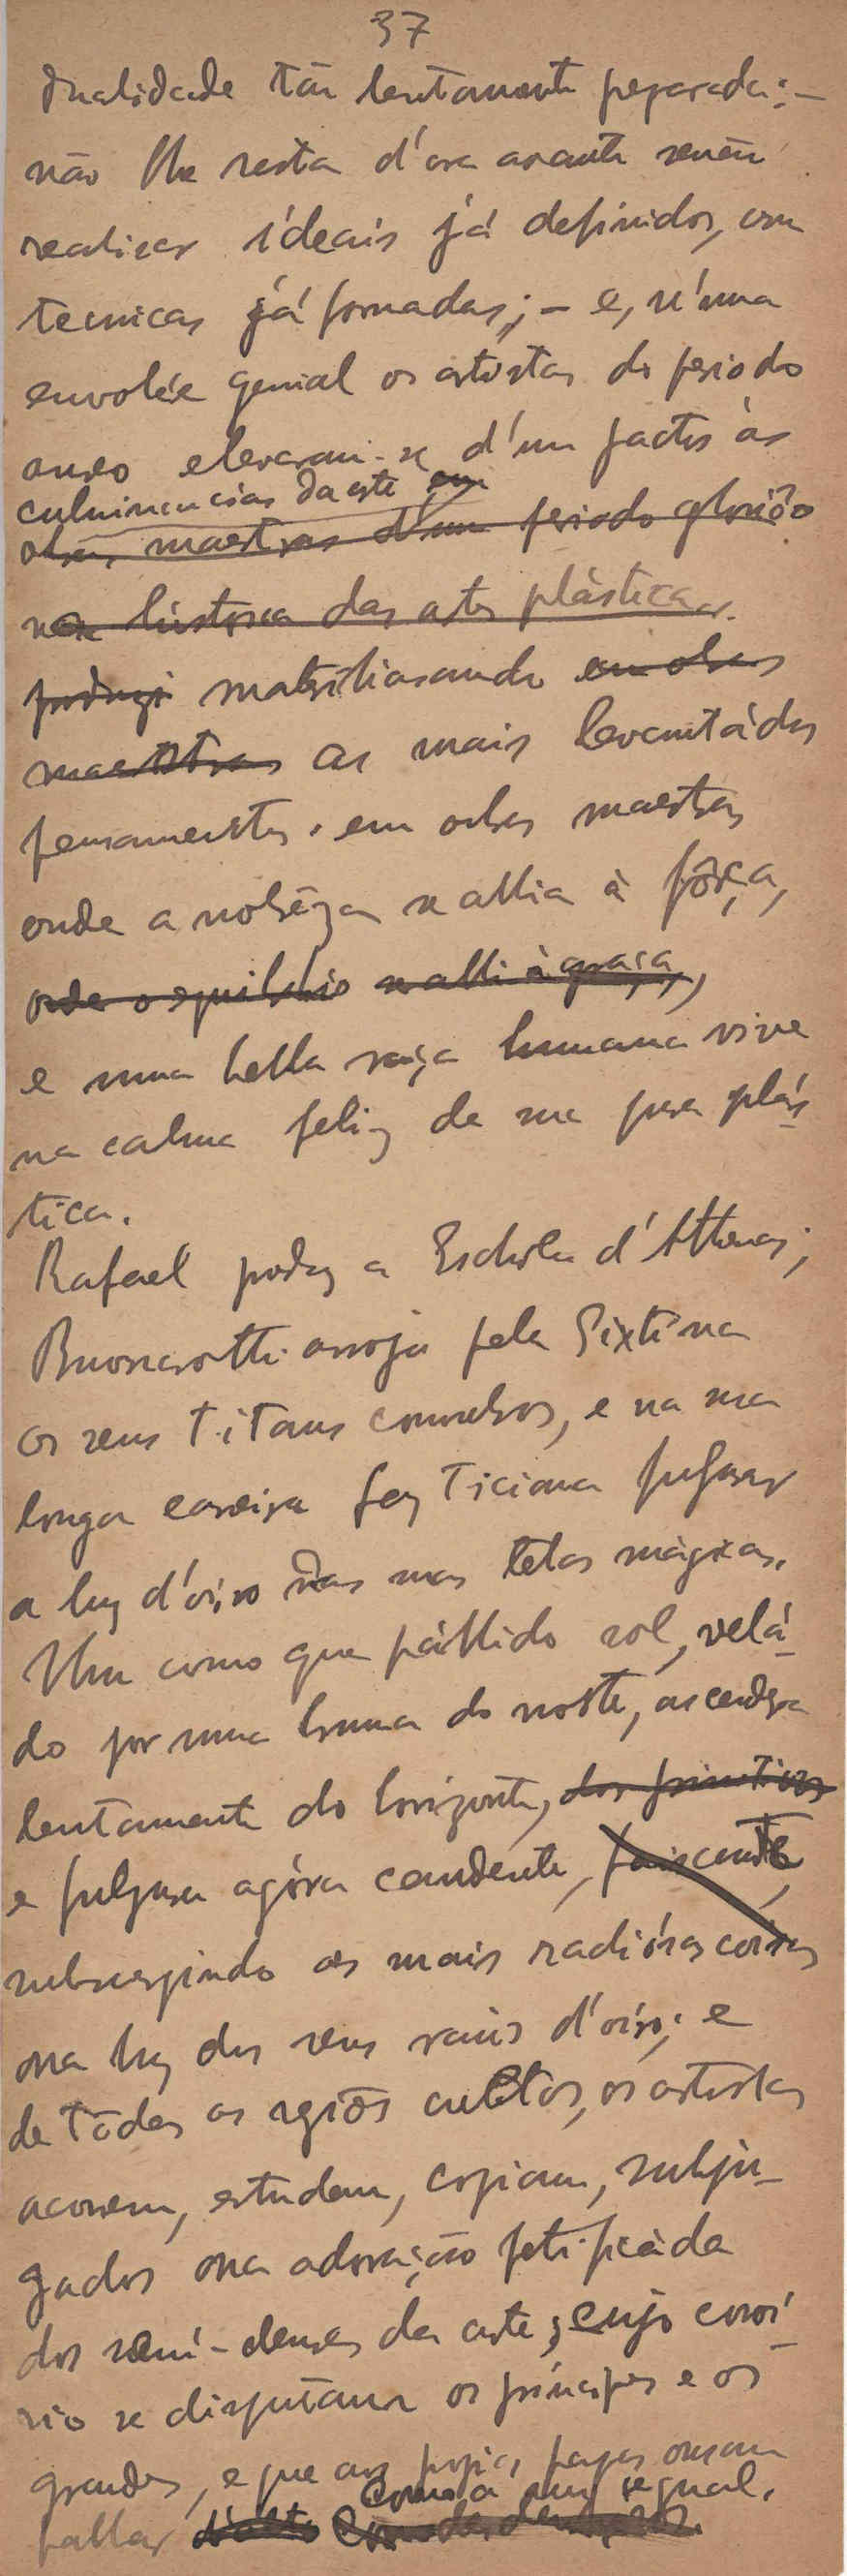 37
dualidade tão lentamente preparada; —
não lhe resta d'ora avante senão
realisar idéais já definidos, com
tecnicas já formadas; — e, n'uma
envolée genial os artistas do periodo
aureo elevaram-se d'um jacto às
culminencias da arte em
obras maestras d'um periodo glorioso
na historia das artes plásticas.
produzi materialisando em obras
maestras as mais levantádos
pensamentos, em obras maestras
onde a nobrêza se allia à fôrça,
onde o equilibrio se alli à graça,
e uma bella raça humana vive
na calma feliz da sua pura plás-
tica.
Rafael produz a Eschola d'Athenas;
Buonarotti arroja pela Sixtina
os seus Titans convulsos, e na sua
longa carreira fez Ticiano fulgurar
a luz d'oiro nas suas telas mágicas.
Um como que pállido sol, velá-
do por uma bruma do norte, ascendera
lentamente do horizonte, dos primitivos
e fulgura agóra candente, faiscante,
submergindo as mais radiósas coisas
na luz dos seus raios d'oiro; e
de tôdas as regiões cultas, os artistas
acorrem, estudam, copiam, subju-
gados na adoração petrificáda
dos semi-deuses da arte, cujo conví-
vio se disputam os principes e os
grandes, e que aos propios papas ousam
como a um iguál.
fallar d'alto como